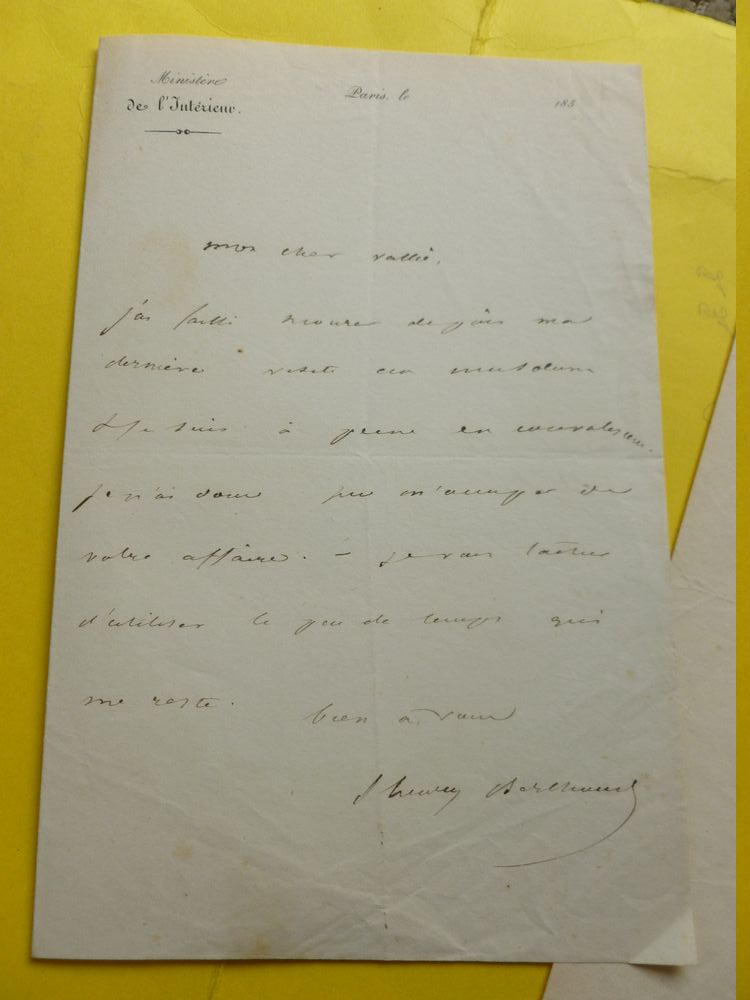 Ministère
de l'Intérieur.
Paris, le 185
mon cher vallée,
j'ai failli mourir depuis ma
dernière visite au muséum
& je suis à peine en convalescence.
je n'ai donc pu m'occuper de
votre affaire. – je vais tâcher
d'utiliser le peu de temps qui
me reste.
bien à vous
S henry Berthoud